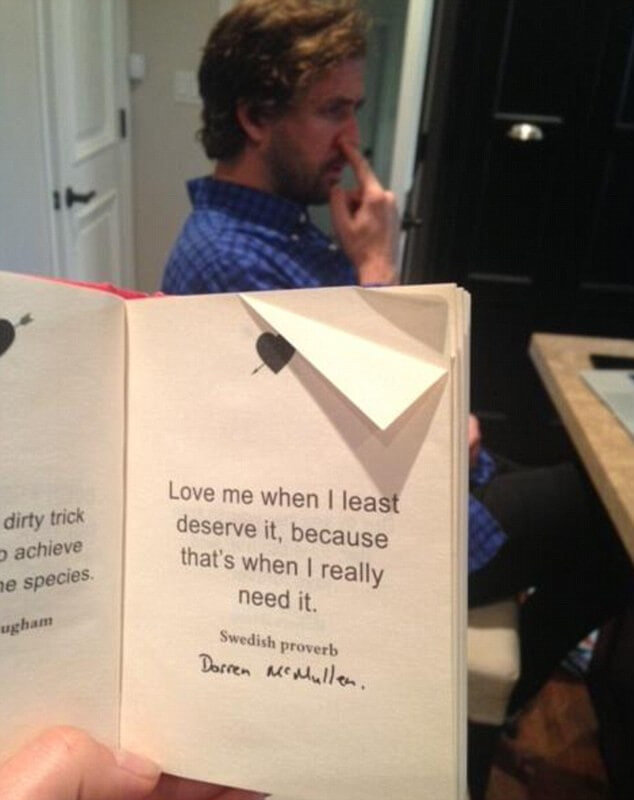 dirty trick
o achieve
ne species.
ugham
Love me when I least
deserve it, because
that's when I really
need it.
Swedish proverb
Darren McMullen.